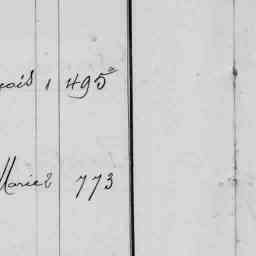 çois 1 495
Marie 2 773